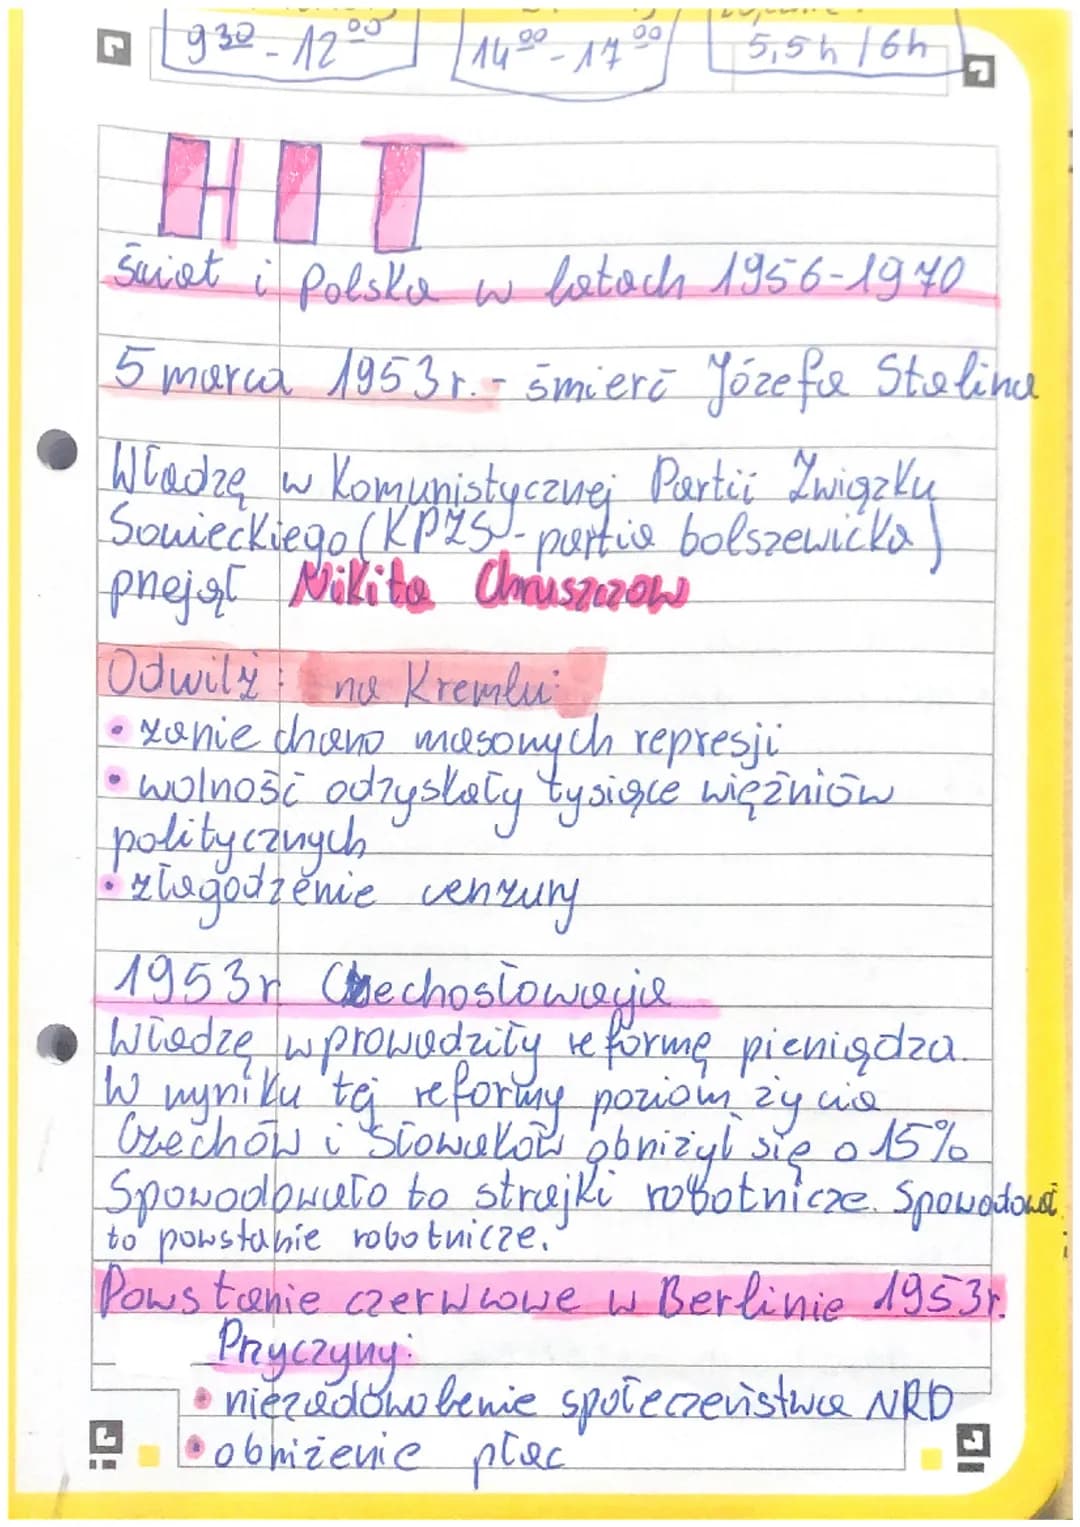 9³⁰-12⁰⁰ 14⁰⁰-17⁰⁰ 5,5h / 6h
HIT
Świat i Polska w latach 1956-1970
5 marca 1953r. - śmierć Józefa Stalina
Władzę w Komunistycznej Partii Związku
Sowieckiego (KPZS - partia bolszewicka)
przejął Nikita Chruszczow
Odwilż: na Kremlu:
• zaniechano masowych represji
• wolność odzyskały tysiące więźniów
politycznych
• złagodzenie cenzury
1953r Czechosłowacja
Władzę wprowadziły reformę pieniądza.
W wyniku tej reformy poziom życia
Czechów i Słowaków obniżył się o 15%
Spowodowało to strajki robotnicze. Spowodował
to powstanie robotnicze.
Powstanie czerwcowe w Berlinie 1953r.
Przyczyny:
• niezadowolenie społeczeństwa NRD
• obniżenie płac